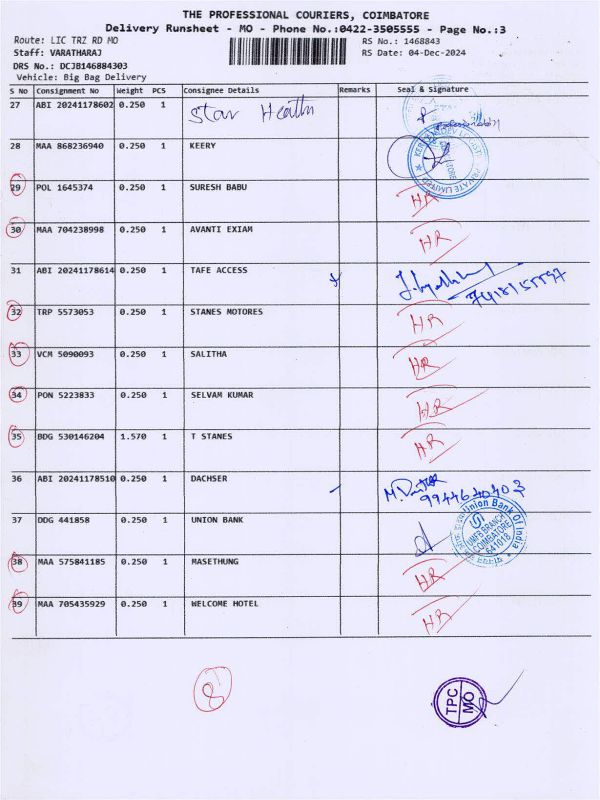 THE PROFESSIONAL COURIERS, COIMBATORE
Delivery Runsheet - MO - Phone No.:0422-3505555 - Page No.:3
Route: LIC TRZ RD MO RS No.: 1468843
Staff: VARATHARAJ RS Date: 04-Dec-2024
DRS No.: DCJB146884303
Vehicle: Big Bag Delivery
S No Consignment No Weight PCS Consignee Details Remarks Seal & Signature
27 ABI 20241178602 0.250 1 Star Health
28 MAA 868236940 0.250 1 KEERY
29 POL 1645374 0.250 1 SURESH BABU HR
30 MAA 704238998 0.250 1 AVANTI EXIAM HR
31 ABI 20241178614 0.250 1 TAFE ACCESS
32 TRP 5573053 0.250 1 STANES MOTORES HR
33 VCM 5090093 0.250 1 SALITHA HR
34 PON 5223833 0.250 1 SELVAM KUMAR HR
35 BDG 530146204 1.570 1 T STANES HR
36 ABI 20241178510 0.250 1 DACHSER 9944640403
37 DDG 441858 0.250 1 UNION BANK Union Bank Of India UMFB BRANCH COIMBATORE 641018
38 MAA 575841185 0.250 1 MASETHUNG HR
39 MAA 705435929 0.250 1 WELCOME HOTEL HR
8
TPC
MO